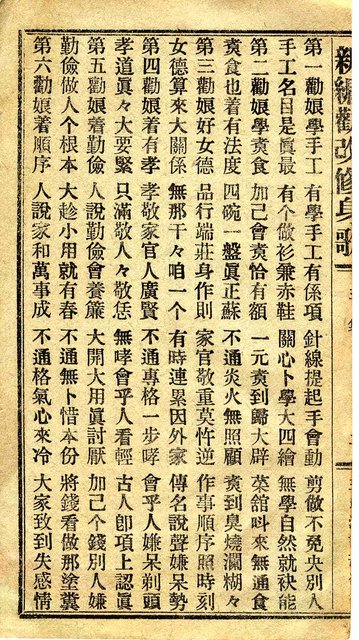 新編勸改修身歌
第一勸娘學手工 有學手工有係項 針線提起手會動 剪做不免央別人
手工名目是眞最 有个做衫兼赤鞋 關心卜學大四繪 無學自然就袂能
第二勸娘學煑食 加己會煑恰有額 一元煑到歸大辟 菜舘呌來無通食
煑食也着有法度 四碗一盤眞正蘇 不通炎火無照顧 煑到臭燒瀾糊々
第三勸娘好女德 品行端莊身作則 家官敬重莫忤逆 作事順序照時刻
女德算來大關係 無那干々咱一个 有時連累因外家 傳名說聲嫌呆勢
第四勸娘着有孝 孝敬家官人廣賢 不通專格一步哮 會乎人嫌呆剃頭
孝道眞々大要緊 只滿敬人々敬恁 無哮會乎人看輕 古人卽項上認眞
第五勸娘着勤儉 人說勤儉會養廉 大開大用眞討厭 加己个錢別人嫌
勤儉做人个根本 大趁小用就有春 不通無卜惜本份 將錢看做那塗糞
第六勸娘着順序 人說家和萬事成 不通格氣心來冷 大家致到失感情